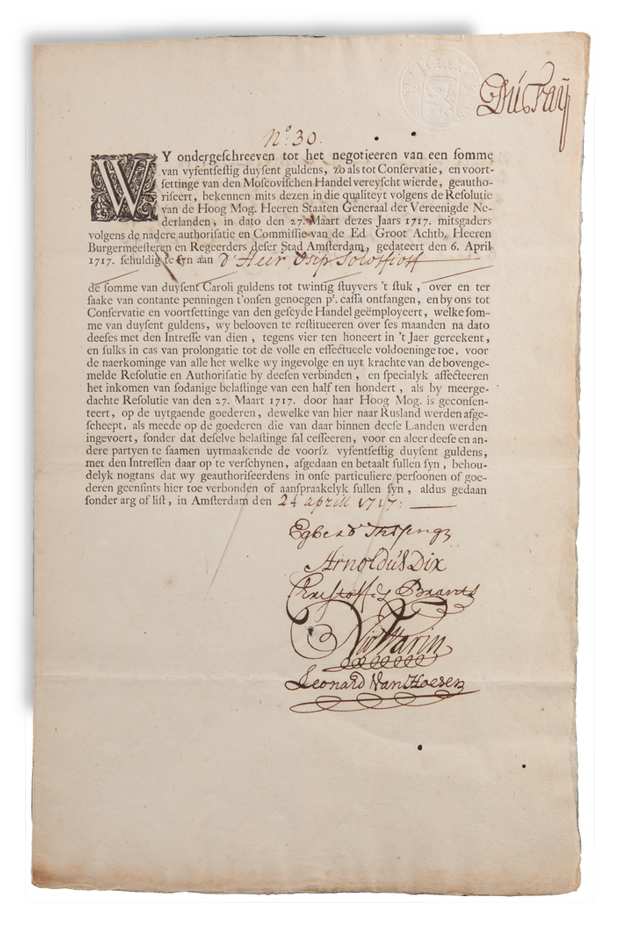 Du Faÿ
N.º 30.
WY ondergeschreeven tot het negotieeren van een somme
van vyfsentseftig duysent guldens, zo als tot Conservatie, en voort-
settinge van den Moscovischen Handel vereyscht wierde, geautho-
riseert, bekennen mits dezen in die qualiteyt volgens de Resolutie
van de Hoog Mog. Heeren Staaten Generaal der Vereenigde Ne-
derlanden, in dato den 27. Maart dezes Jaars 1717. mitsgaders
volgens de nadere authorisatie en Commissie van de Ed. Groot Achtb, Heeren
Burgermeesteren en Regeerders deser Stad Amsterdam, gedateert den 6. April
1717. schuldig te syn aan d'Heer Osip Soloffioff
de somme van duysent Caroli guldens tot twintig stuyvers 't stuk, over en ter
saake van contante penningen t'onsen genoegen pr. cassa ontfangen, en by ons tot
Conservatie en voortsettinge van den geseyde Handel geëmployeert, welke som-
me van duysent guldens, wy belooven te restitueeren over ses maanden na dato
deeses met den Intresse van dien, tegens vier ten honcert in 't Jaer gereekent,
en sulks in cas van prolongatie tot de volle en effectueele voldoeninge toe, voor
de naerkominge van alle het welke wy ingevolge en uyt krachte van de bovenge-
melde Resolutie en Authorisatie by deesen verbinden, en specialyk affecteeren
het inkomen van sodanige belastinge van een half ten hondert, als by meerge-
dachte Resolutie van den 27. Maart 1717. door haar Hoog Mog. is geconsen-
teert, op de uytgaende goederen, dewelke van hier naar Rusland werden afge-
scheept, als meede op de goederen die van daar binnen deese Landen werden
ingevoert, sonder dat deselve belastinge sal cesseeren, voor en aleer deese en an-
dere partyen te saamen uytmaakende de voorsz vyfsentseftig duysent guldens,
met den Intressen daar op te verschynen, afgedaan en betaalt sullen syn, behou-
delyk nogtans dat wy geauthoriseerdens in onse particuliere persoonen of goe-
deren geensints hier toe verbonden of aanspraakelyk sullen syn, aldus gedaan
sonder arg of list, in Amsterdam den 24 aprill 1717:
Egbert Thesingh
Arnoldus Dix
Christoffel Brants
Nic Warin
Leonard Van Hoesen